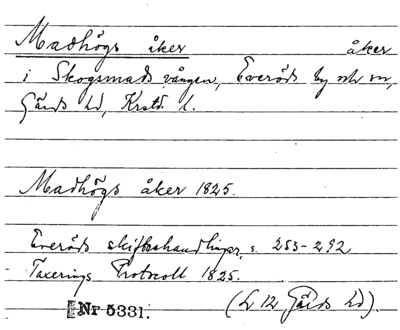 Madhögs åker åker
i Skogsmads vången, Everöds by och sn,
Gärds hd, Krstd. l.
Madhögs åker 1825.
Everöds skifteshandlingar, s. 253-292
Taxerings Protocoll 1825.
Nr 5331. (L 12 Gärds hd).